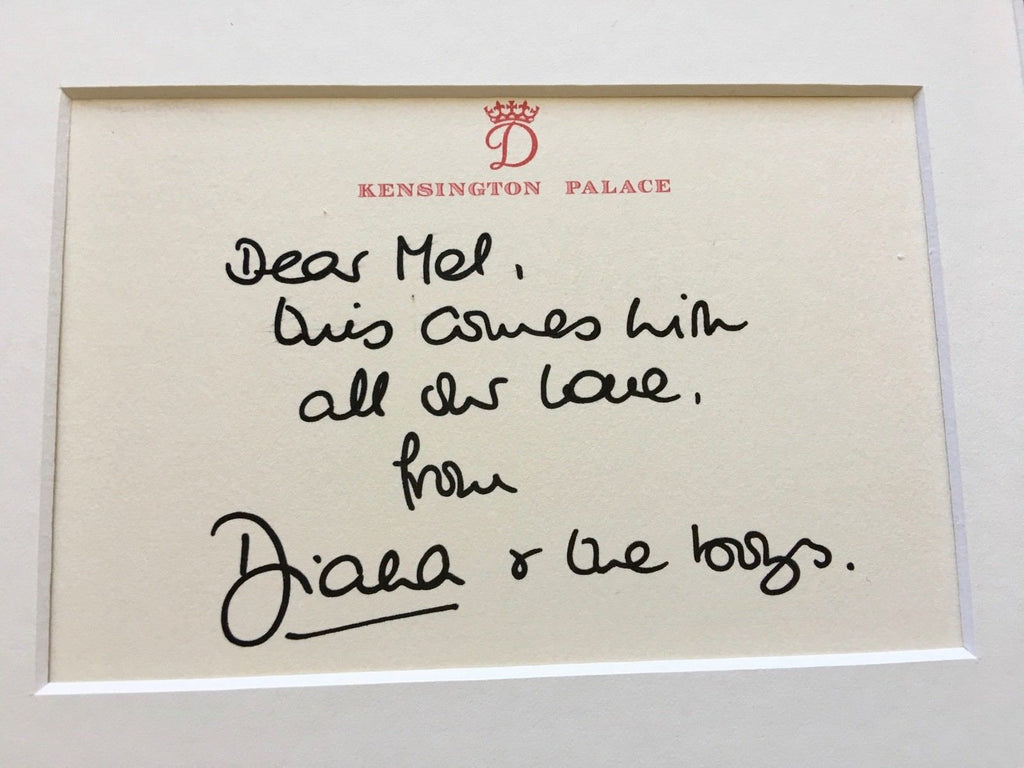 D
KENSINGTON PALACE
Dear Mel,
this comes with
all our love.
from
Diana & the boys.